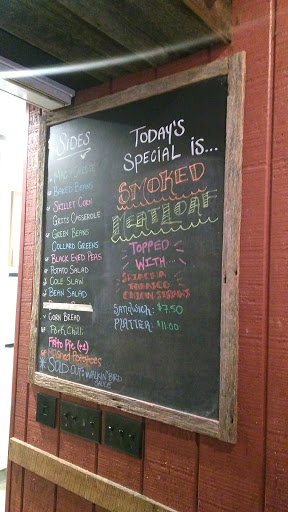 Sides
Mac + Cheese
Baked Beans
Skillet Corn
Grits Casserole
Green Beans
Collard Greens
Black Eyed Peas
Potato Salad
Cole Slaw
Bean Salad
Corn Bread
Pork Chili
Frito Pie (+1)
Mashed Potatoes
* Sold out: Walkin' Bird
Sauce
Today's
Special is...
Smoked
Meatloaf
Topped
With...
Sriracha
Tobacco
Onion Strings
Sandwich: $7.50
Platter: $11.00